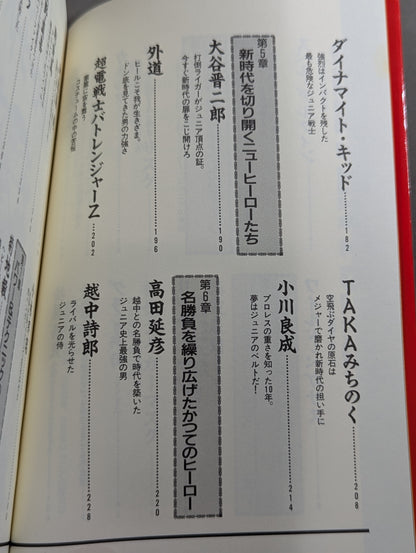 ダイナマイト・キッド……182
強烈なインパクトを残した
最も危険なジュニア戦士
第5章
新時代を切り開くニューヒーローたち
大谷晋二郎……190
打倒ライガーがジュニア頂点の証。
今すぐ新時代の扉をこじ開けろ
外道……196
ヒールこそ我が生きざま。
ドン底を見てきた男の力強さ
超電戦士バトレンジャーZ……202
コスチュームの中の苦悩
TAKAみちのく……208
空飛ぶダイヤの原石は
メジャーで磨かれ新時代の担い手に
小川良成……214
プロレスの重さを知った10年。
夢はジュニアのベルトだ!
第6章
名勝負を繰り広げたかつてのヒーロー
高田延彦……220
越中との名勝負で時代を築いた
ジュニア史上最強の男
越中詩郎……228
ライバルを光らせた
ジュニアの侍